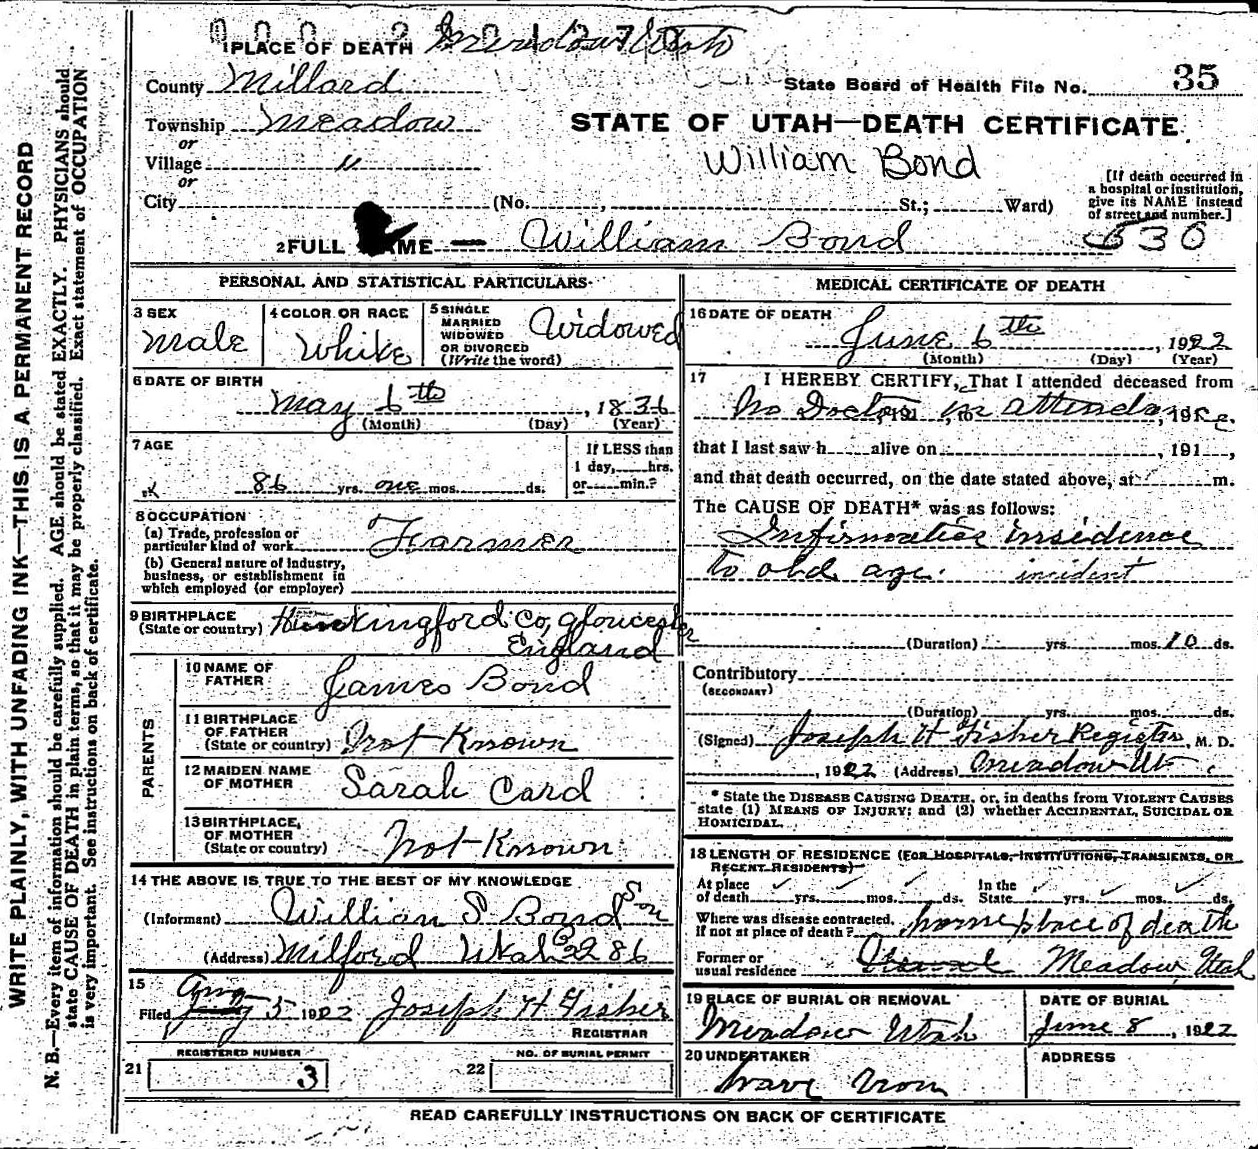 1 PLACE OF DEATH Meadow Utah
County Millard
State Board of Health File No. 35
Township Meadow
or
STATE OF UTAH—DEATH CERTIFICATE
Village "
or
William Bond
City (No. , St.; Ward)
[If death occurred in
a hospital or institution,
give its NAME instead
of street and number.]
2 FULL ME — William Bond
630
WRITE PLAINLY, WITH UNFADING INK—THIS IS A PERMANENT RECORD
N. B.—Every item of information should be carefully supplied. AGE should be stated EXACTLY. PHYSICIANS should
state CAUSE OF DEATH in plain terms, so that it may be properly classified. Exact statement of OCCUPATION
is very important. See instructions on back of certificate.
PERSONAL AND STATISTICAL PARTICULARS
3 SEX
Male
4 COLOR OR RACE
White
5 SINGLE
MARRIED
WIDOWED
OR DIVORCED
(Write the word)
Widowed
6 DATE OF BIRTH
May 6th , 1836
(Month) (Day) (Year)
7 AGE
86 yrs. one mos. ds.
If LESS than
1 day, hrs.
or min.?
8 OCCUPATION
(a) Trade, profession or
particular kind of work Farmer
(b) General nature of industry,
business, or establishment in
which employed (or employer)
9 BIRTHPLACE
(State or country) Co, Gloucester
England
PARENTS
10 NAME OF
FATHER James Bond
11 BIRTHPLACE
OF FATHER
(State or country) Not Known
12 MAIDEN NAME
OF MOTHER Sarah Card
13 BIRTHPLACE,
OF MOTHER
(State or country) Not Known
14 THE ABOVE IS TRUE TO THE BEST OF MY KNOWLEDGE
(Informant) William S Bond Son
(Address) Milford Utah 86
15
Aug
Filed 5 1922 Joseph H Fisher
REGISTRAR
REGISTERED NUMBER
21 3
NO. OF BURIAL PERMIT
22
MEDICAL CERTIFICATE OF DEATH
16 DATE OF DEATH
June 6th , 1922
(Month) (Day) (Year)
17 I HEREBY CERTIFY, That I attended deceased from
No Doctor in attendance
that I last saw h alive on , 191 ,
and that death occurred, on the date stated above, at m.
The CAUSE OF DEATH* was as follows:
Infirmaties insidence
to old age. incident
(Duration) yrs. mos. 10 ds.
Contributory
(SECONDARY)
(Duration) yrs. mos. ds.
(Signed) Joseph H Fisher Register, M. D.
, 1922 (Address) Meadow Ut
* State the DISEASE CAUSING DEATH, or, in deaths from VIOLENT CAUSES
state (1) MEANS OF INJURY; and (2) whether ACCIDENTAL, SUICIDAL OR
HOMICIDAL.
18 LENGTH OF RESIDENCE (FOR HOSPITALS, INSTITUTIONS, TRANSIENTS, OR
RECENT RESIDENTS)
At place
of death yrs. mos. ds.
In the
State yrs. mos. ds.
Where was disease contracted,
if not at place of death? home place of death
Former or
usual residence Meadow, Utah
19 PLACE OF BURIAL OR REMOVAL
Meadow Utah
DATE OF BURIAL
June 8 , 1922
20 UNDERTAKER
ADDRESS
READ CAREFULLY INSTRUCTIONS ON BACK OF CERTIFICATE